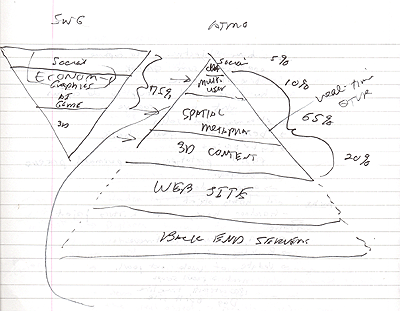 SWG
Social
ECONOMY
GRAPHICS
AI
GAME
3D
75%
Social
CHAT
MULTI-
USER
SPATIAL
METAPHOR
3D CONTENT
WEB SITE
BACK END SERVERS
5%
10%
65%
20%
real-time